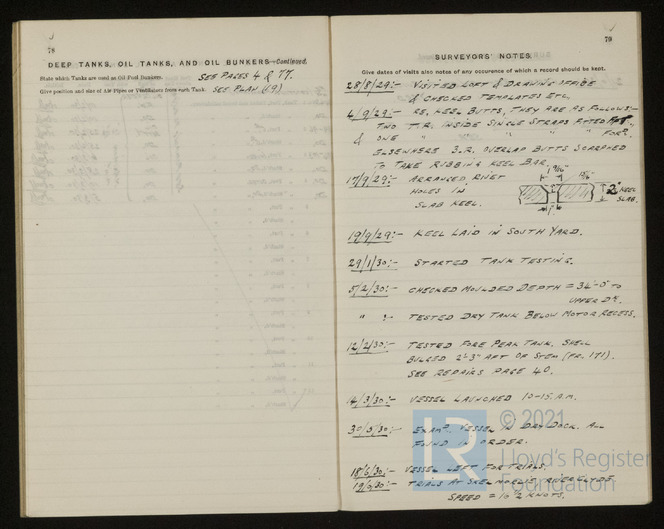 78
DEEP TANKS, OIL TANKS, AND OIL BUNKERS—Continued.
State which Tanks are used as Oil Fuel Bunkers. SEE PAGES 4 & 77.
Give position and size of Air Pipes or Ventilators from each Tank. SEE PLAN (19)
79
SURVEYORS' NOTES
Give dates of visits also notes of any occurence of which a record should be kept.
28/8/29:- VISITED LOFT & DRAWING OFFICE
& CHECKED TEMPLATES ETC.
4/9/29:- RE, KEEL BUTTS, THEY ARE AS FOLLOWS:-
TWO T.R. INSIDE SINGLE STRAPS FITTED AFT
& ONE " " " " " FORD.
ELSEWHERE 3.R. OVERLAP BUTTS SCARPHED
TO TAKE RUBBING KEEL BAR.
17/9/29:- ARRANGED RIVET
HOLES IN
SLAB KEEL.
2" KEEL
SLAB.
19/9/29:- KEEL LAID IN SOUTH YARD.
29/1/30:- STARTED TANK TESTING.
5/2/30:- CHECKED MOULDED DEPTH = 34'-0" TO
UPPER DK.
" :- TESTED DRY TANK BELOW MOTOR RECESS.
12/2/30:- TESTED FORE PEAK TANK. SHELL
BULGED 2'-3" AFT OF STEM (FR. 171).
SEE REPAIRS PAGE 40.
14/3/30:- VESSEL LAUNCHED 10-15 A.M.
30/5/30:- EXAMD. VESSEL IN DRY DOCK. ALL
FOUND IN ORDER.
18/6/30:- VESSEL LEFT FOR TRIALS.
19/6/30:- TRIALS AT SKELMORLIE, RIVER CLYDE.
SPEED = 10½ KNOTS.
LR
© 2021
Lloyd's Register
Foundation